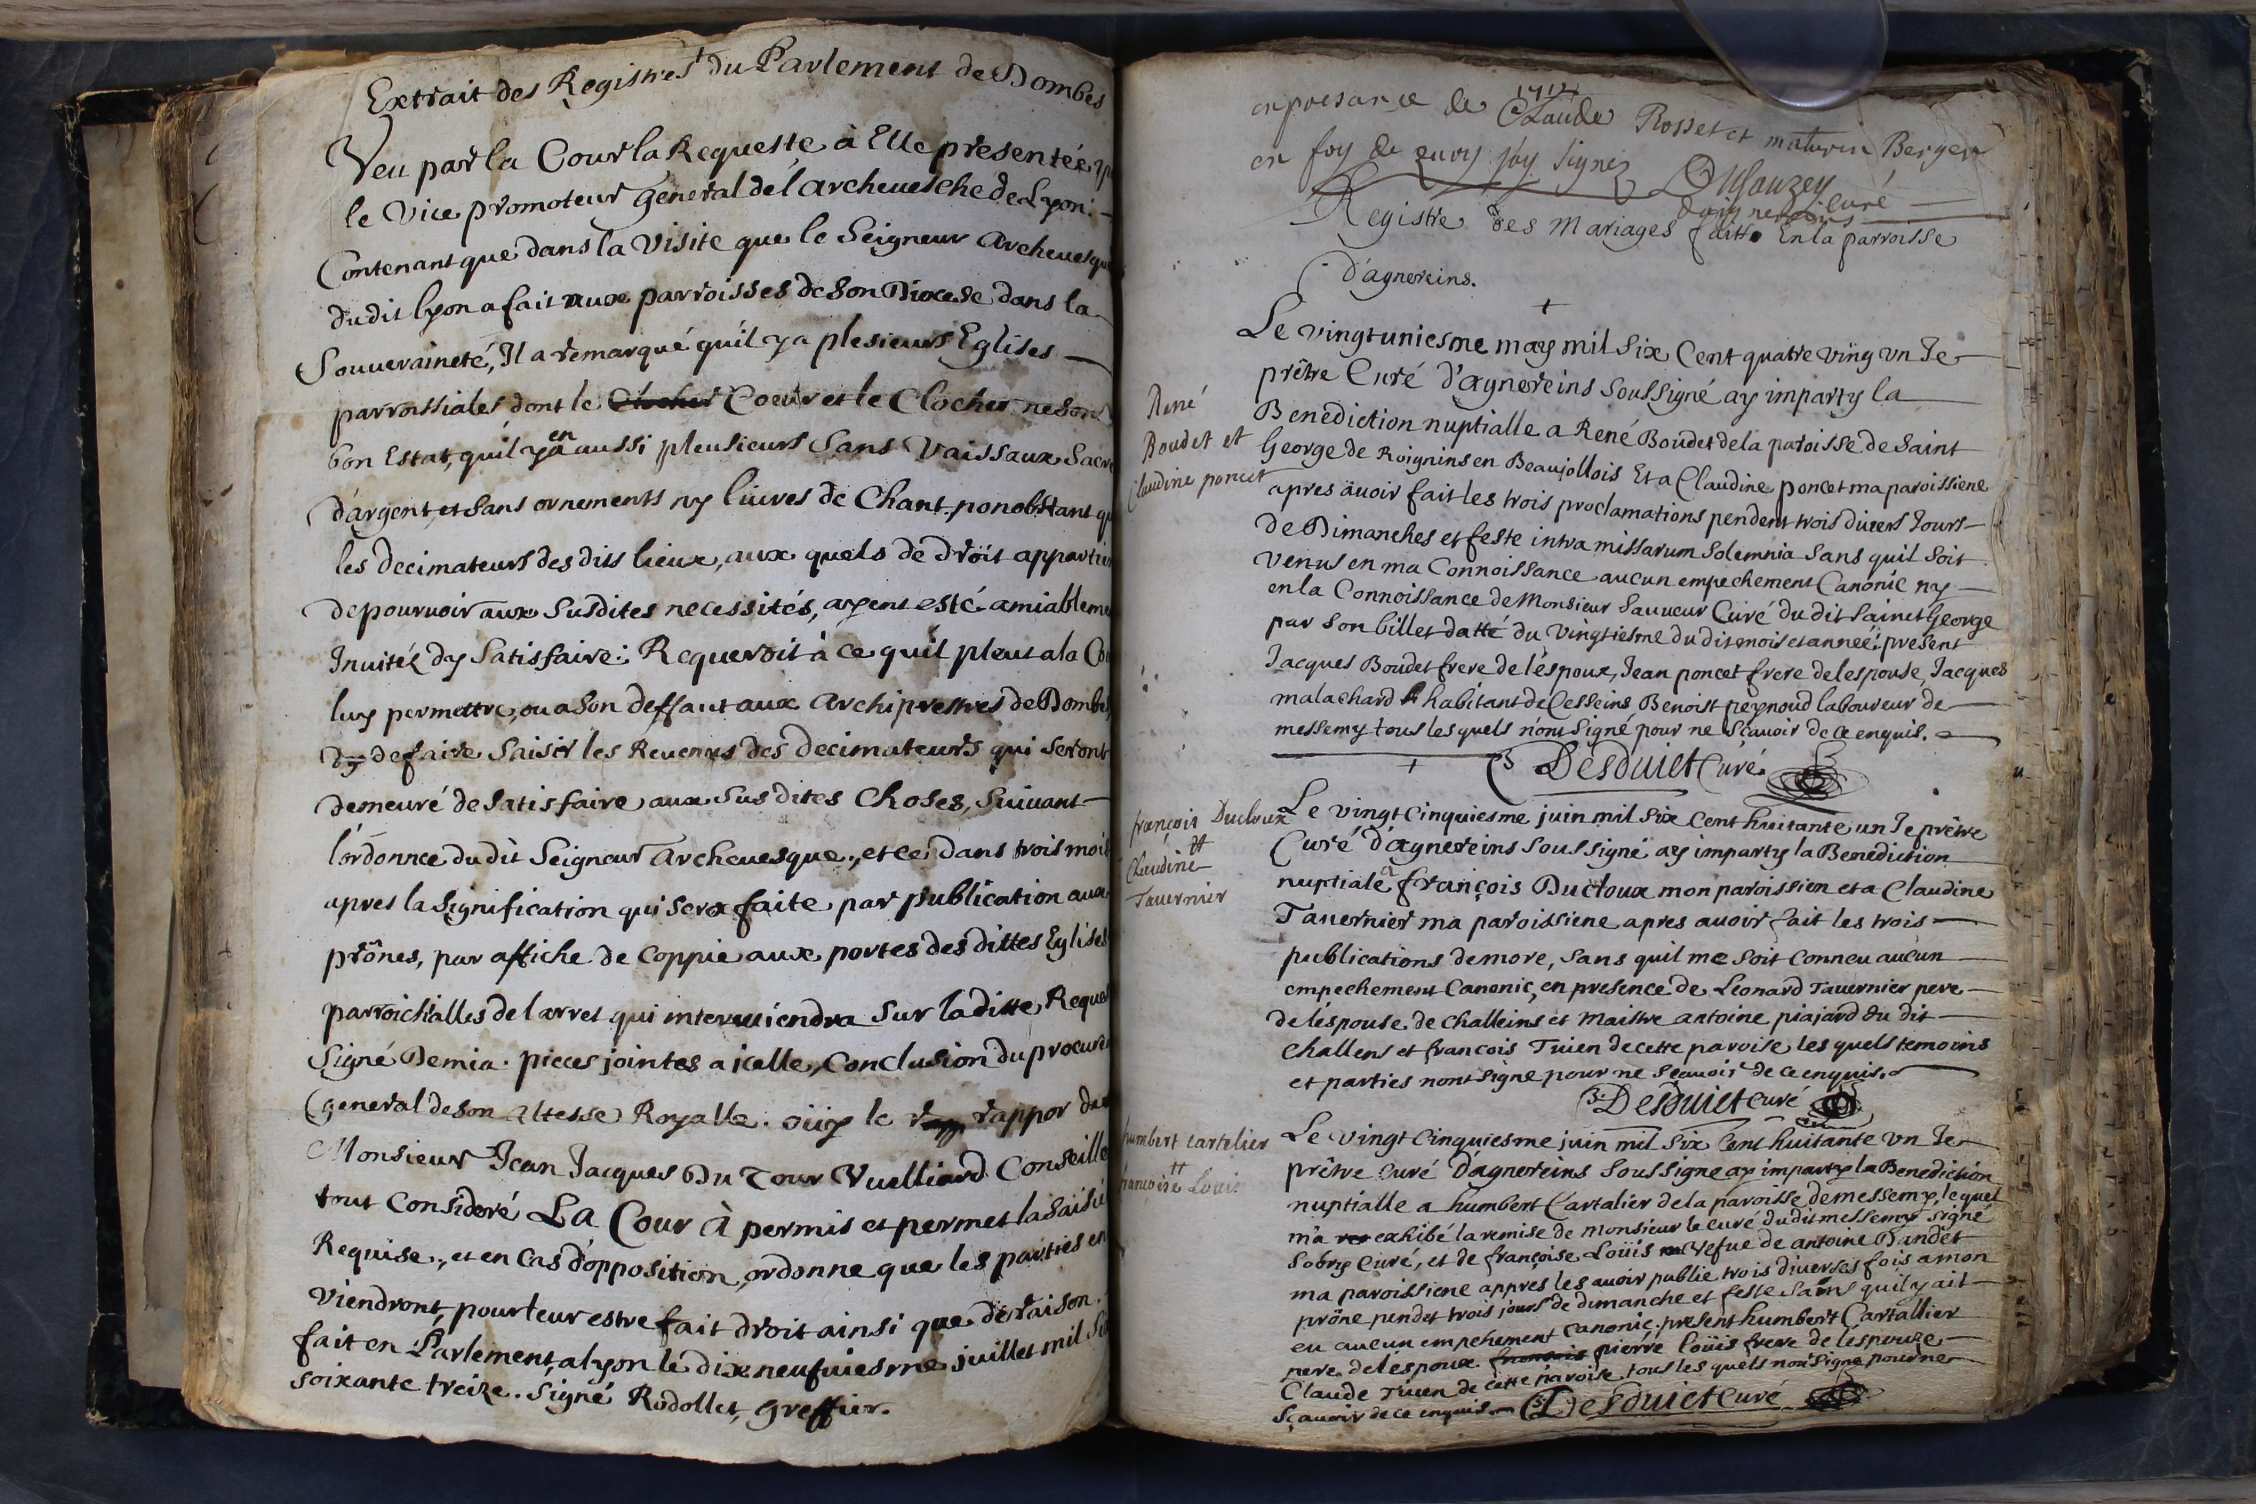 Extrait des Registres du Parlement de Dombes
Veu par la Cour la Requeste à Elle presentée
le Vice promoteur general de l'archevesche de Lyon. —
Contenant que dans la Visite que le Seigneur Archeuesque
dudit lyon a fait aux parroisses de Son Diocese dans la
Souueraineté, Il a remarqué quil y a plesieurs Eglises —
parroissiales dont le Clocher Coeur et le Clocher ne Son
bon Estat, quil y en a aussi pleusieurs Sans Vaissaux Sacre
d'argent et Sans ornements ny liures de Chant. nonobstant
les decimateurs des dits lieux, aux quels de droit appartien
de pouruoir aux Susdites necessités, ayent esté amiableme
Inuités dy Satisfaire: Requeroit à ce quil pleut a la Co
luy permettre, ou a Son deffaut aux Archiprestres de Dombes
dy de faire Saisir les Reuenus des decimateurs qui Seront
demeuré de Satisfaire aux Sus dites Choses, Suiuant —
l'ordonnce du dit Seigneur Archeuesque, et ce dans trois mois
apres la Signification qui Sera faite par publication aux
prônes, par affiche de Coppie aux portes des dittes Eglises
parroichialles de larret qui interuiendra Sur la ditte Reques
Signé Demia. pieces jointes a icelle, Conclusion du procureu
General de Son Altesse Royalle. oüy le rapp rappor de
Monsieur Jean Jacques Du Tour Vuelliard Conseille
tout Consideré La Cour à permis et permet la Saisie
Requise, et en Cas d'opposition, ordonne que les parties en
Viendront, pour leur estre fait droit ainsi que de raison.
fait en Parlement, a lyon le dixneufuiesme juillet mil Six
Soixante treize. Signé Rodollet, Greffier.
1717
en presance de Claude Rosset et maturin Berger
en foy de quoy j'ay Signez Dusauzey
Curé
d'agnereins
Registre des Mariages faitts En la parroisse
d'agnereins.
René
Boudet et
Claudine poncet
Le vingtuniesme may mil Six Cent quatre ving un Je —
prêtre Curé d'agnereins Soussigné ay imparty la —
Benediction nuptialle a René Boudet de la paroisse de Saint
George de Roignins en Beaujollois Et a Claudine poncet ma paroissiene
apres auoir fait les trois proclamations pendent trois diuers Jours —
de Dimanches et feste intra missarum Solemnia Sans quil Soit
Venus en ma Connoissance aucun empechement Canonic ny —
en la Connoissance de Monsieur Sauueur Curé du dit Sainct George
par Son billet datté du Vingtiesme du dit mois et anneé: present
Jacques Boudet frere de l'éspoux, Jean poncet frere de lespouse, Jacques
malachard habitant de Cesseins Benoist peynoud laboureur de —
messemy tous lesquels n'ont Signé pour ne Scauoir de ce enquis.
Desduict Curé
françois Ducloux
tt
Claudine
Tauernier
Le vingt Cinquiesme juin mil Six Cent huitante un Je prêtre
Curé d'agnereins Soussigné ay imparty la Benediction
nuptiale a françois Ducloux mon paroissien et a Claudine
Tauernier ma paroissiene apres auoir fait les trois —
publications de more, Sans quil me Soit Conneu aucun —
empechement Canonic, en presence de Léonard Tauernier pere —
de l'éspouse de Challeins et Maistre antoine piajard du dit —
Challens et francois Tuien de cette paroise les quels temoins
et parties nont Signe pour ne Scauoir de ce enquis.
Desduict Curé
humbert Cartelier
tt
françoise Louis
Le Vingt Cinquiesme juin mil Six Cent huitante un Je —
prêtre Curé d'agnereins Soussigne ay imparty la Benediction
nuptialle a humbert Cartalier de la paroisse de messemy, lequel
m'a exhibé la remise de Monsieur le Curé du dit messemy Signé
Sobry Curé, et de françoise Loüis Vefue de antoine Dandet
ma paroissiene appres les auoir publie trois diuerses fois a mon
prône pendet trois jours de dimanche et feste Sans quil y ait —
eu aucun empechement Canonic. present humbert Cartallier
pere de l'éspoux. francois pierre loüis frere de lespouze —
Claude Tuien de cette paroise tous les quels nont Signe pour ne
Sçauoir de ce enquis Desduict Curé